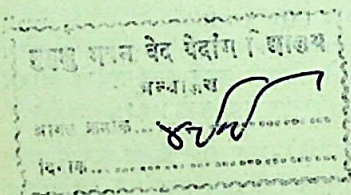 भवन वेद वेदांग विद्यालय
ग्रन्थालय
आगत क्रमांक...
दिनांक...